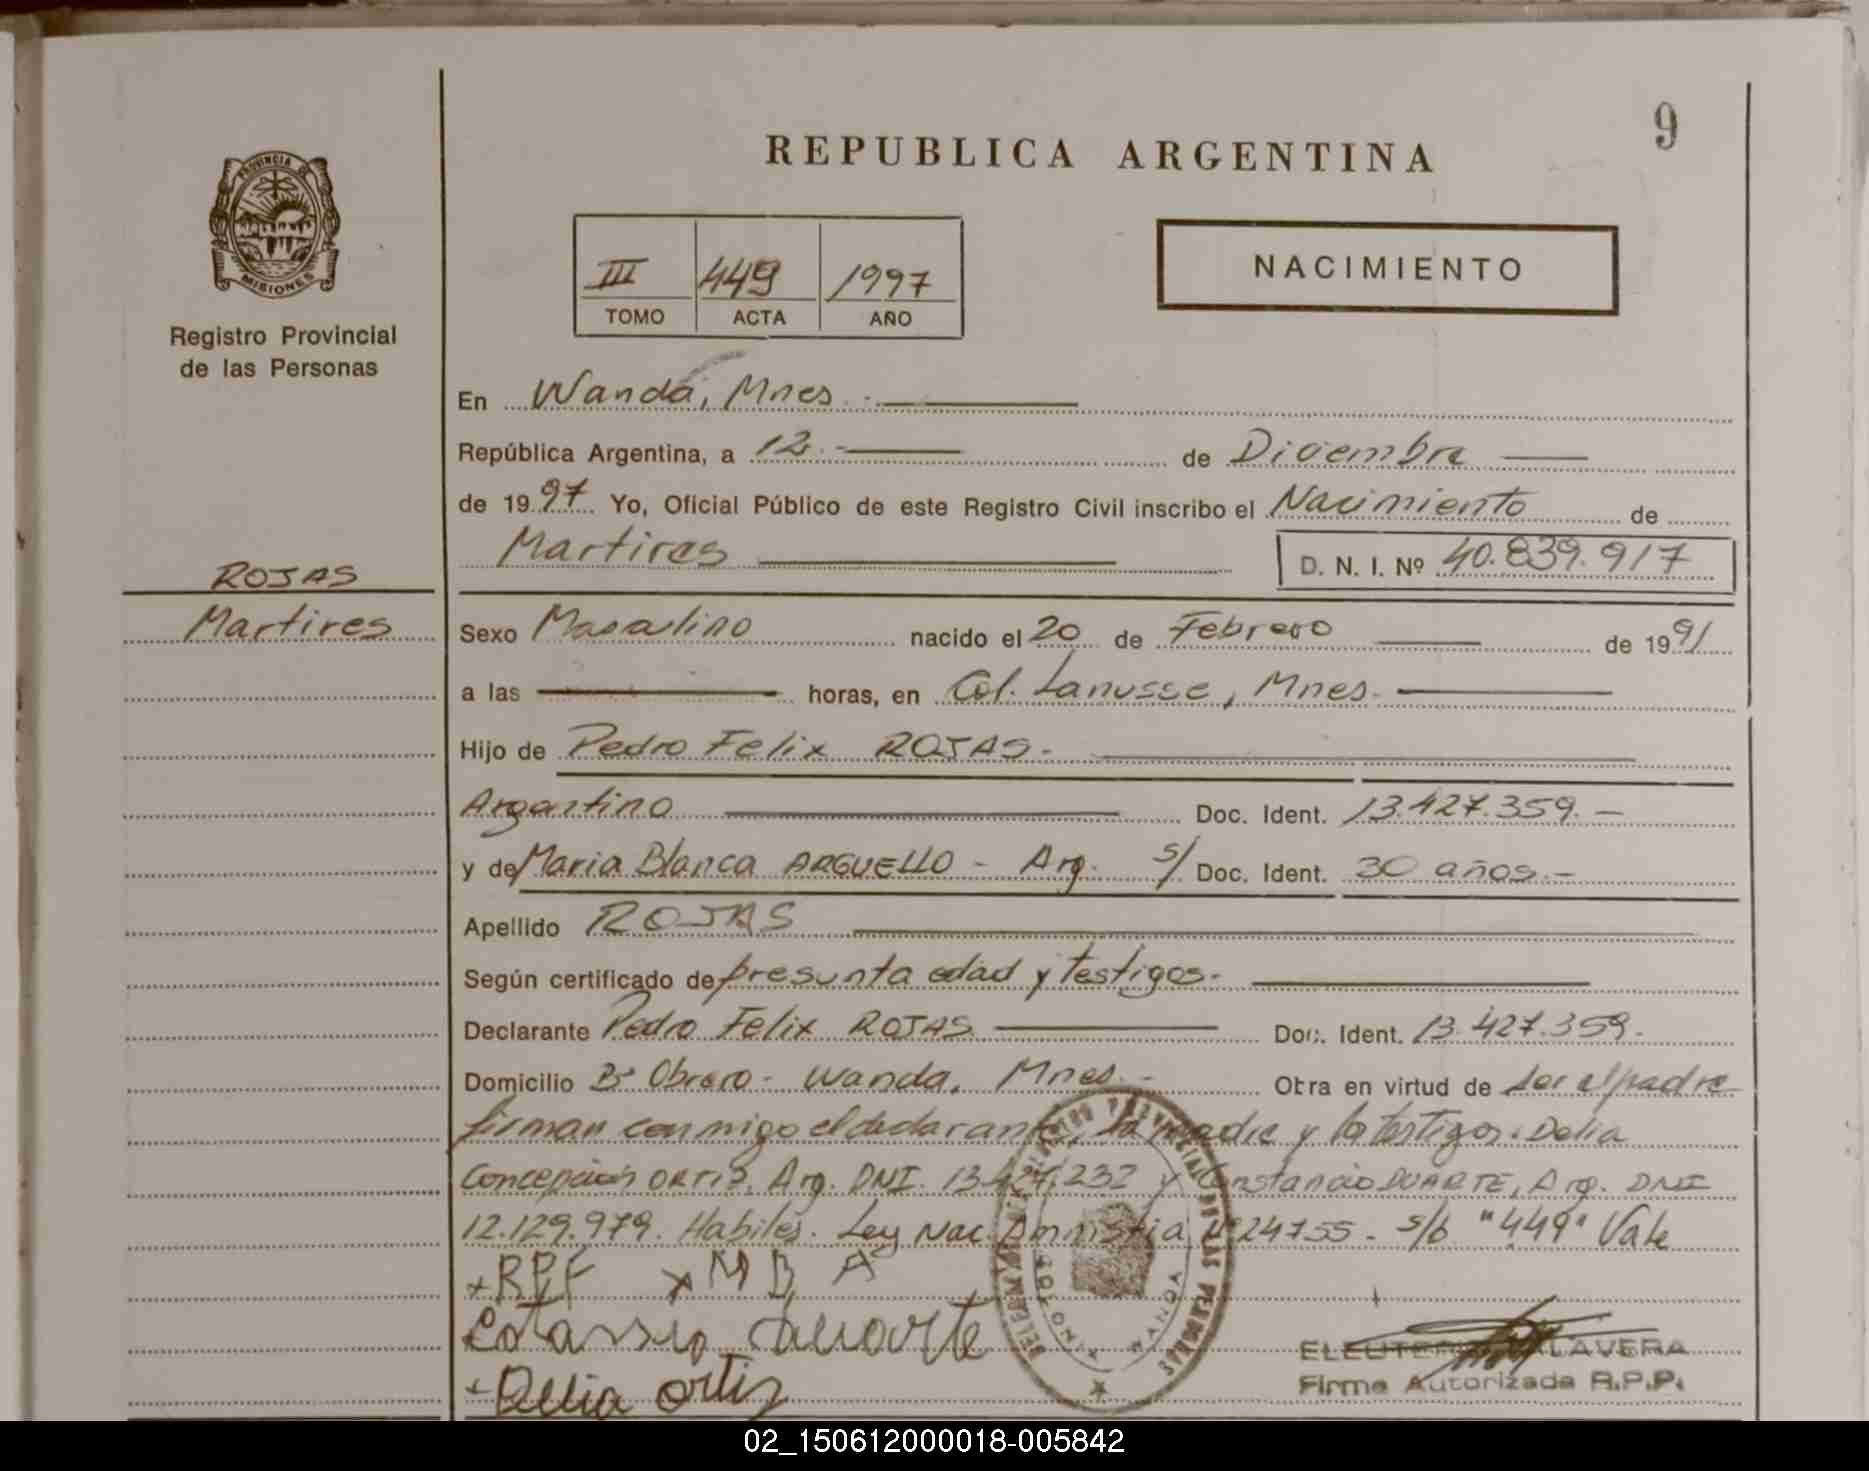 9
REPUBLICA ARGENTINA
PROVINCIA DE
MISIONES
Registro Provincial
de las Personas
III 449 1997
TOMO ACTA AÑO
NACIMIENTO
En Wanda, Mnes.
República Argentina, a 12.- de Diciembre
de 1997 Yo, Oficial Público de este Registro Civil inscribo el Nacimiento de
Martires D. N. I. Nº 40.839.917
ROJAS
Martires
Sexo Masculino nacido el 20 de Febrero de 1991
a las horas, en Col. Lanusse, Mnes.
Hijo de Pedro Felix ROJAS.-
Argentino Doc. Ident. 13.427.359.-
y de Maria Blanca ARGUELLO - Arg. s/ Doc. Ident. 30 años.-
Apellido ROJAS
Según certificado de presunta edad y testigos.
Declarante Pedro Felix ROJAS Doc. Ident. 13.427.359.
Domicilio Bº Obrero - Wanda, Mnes.- Obra en virtud de ser el padre
firman conmigo el declarante, la madre y los testigos: Delia
Concepción ORTIZ, Arg. DNI. 13.427.232 y Constancio DUARTE, Arg. DNI
12.129.979. Habiles. Ley Nac. Amnistia Nº 24755.- s/b "449" Vale
+RPF x M B A
Duarte
Delia Ortiz
WANDA
MISIONES
ELEUTERIO TALAVERA
Firma Autorizada R.P.P.
02_150612000018-005842